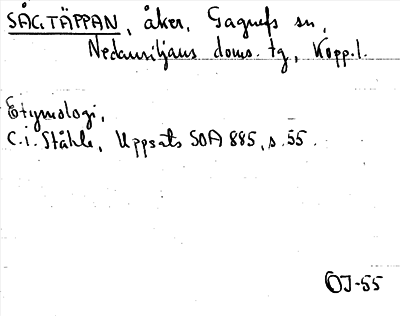 SÅGTÄPPAN, åker, Gagnefs sn,
Nedansiljans doms. tg, Kopp.l.
Etymologi,
C.i. Ståhle, Uppsats SOA 885, s. 55.
OJ-55